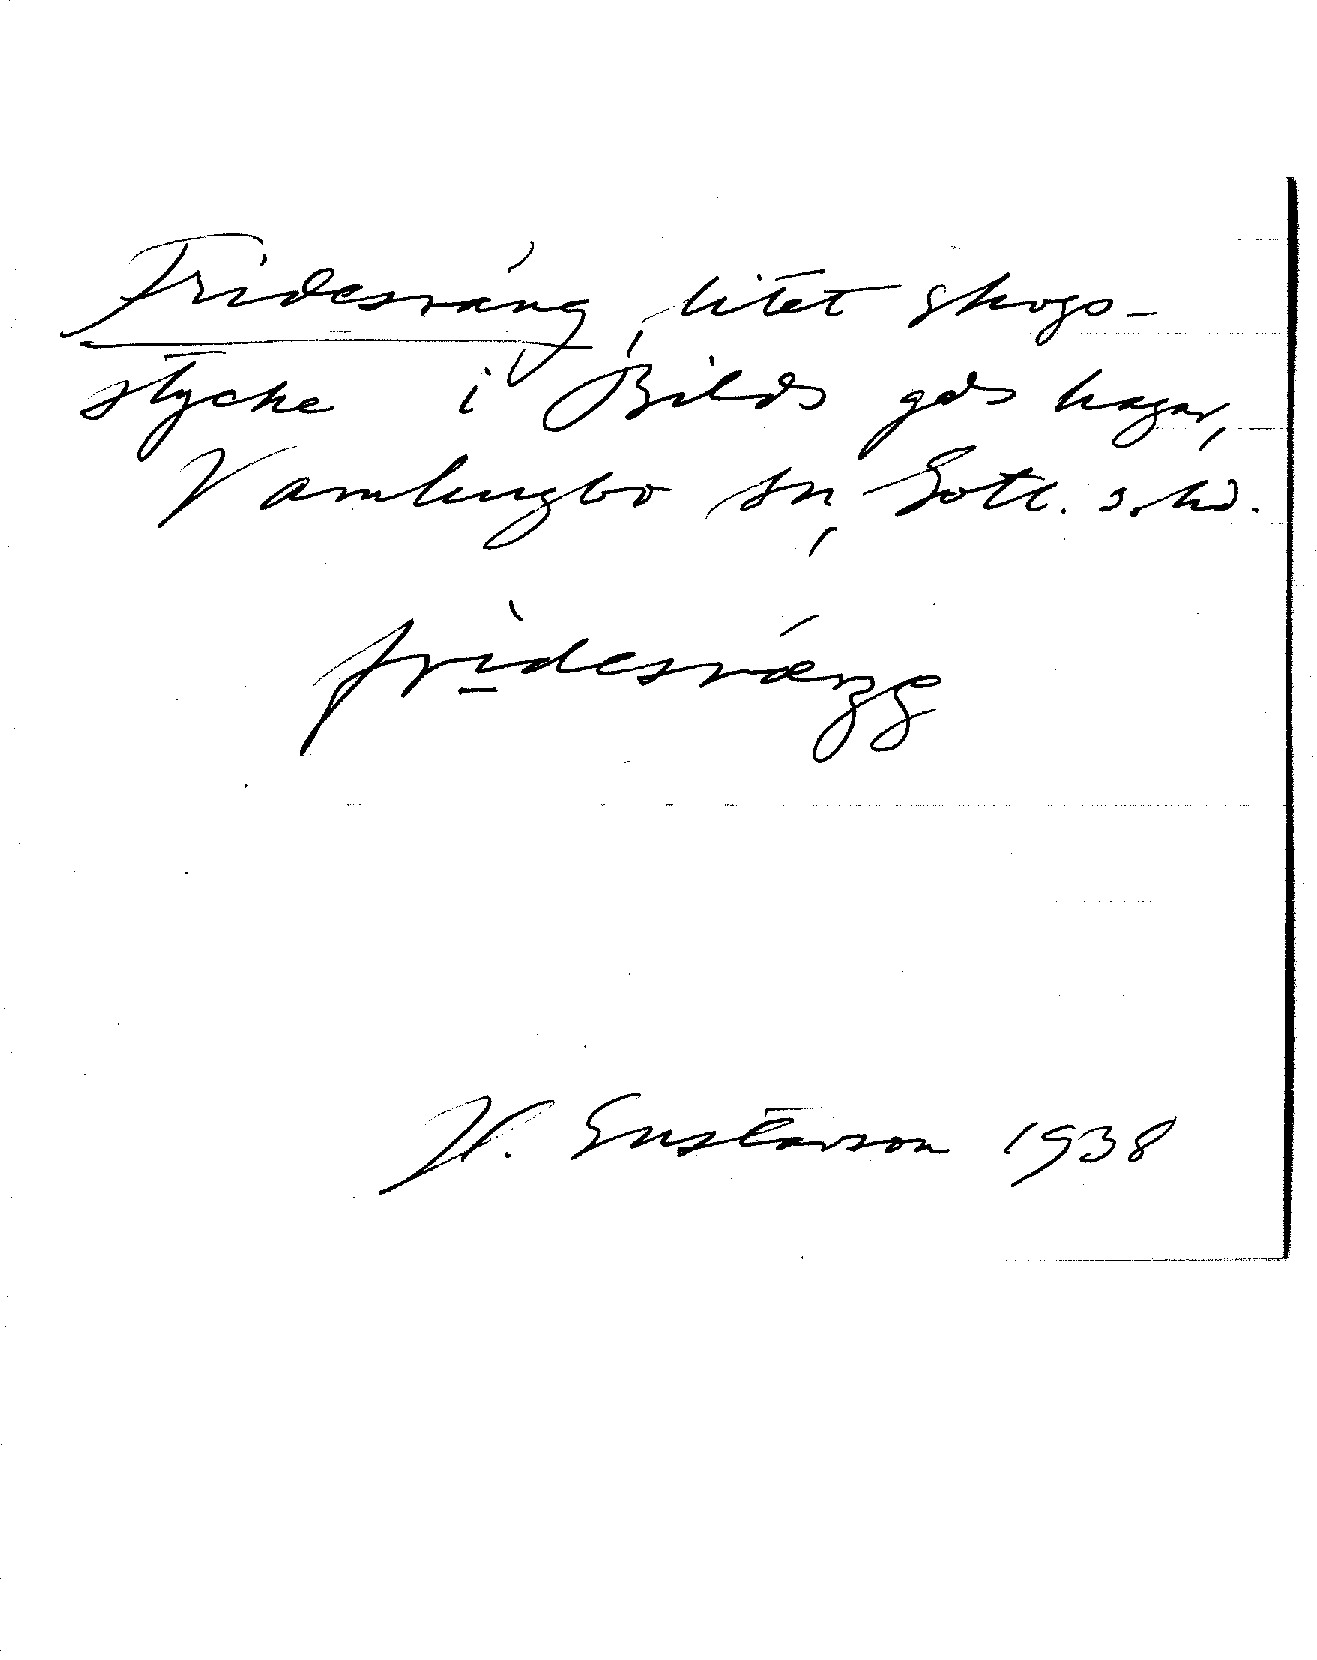 Fridesväng, litet skogs-
stycke i Bilds gds hagar,
Vamlingbo sn, Gotl. s. hd.
fridesväŋg
H. Gustavson 1938